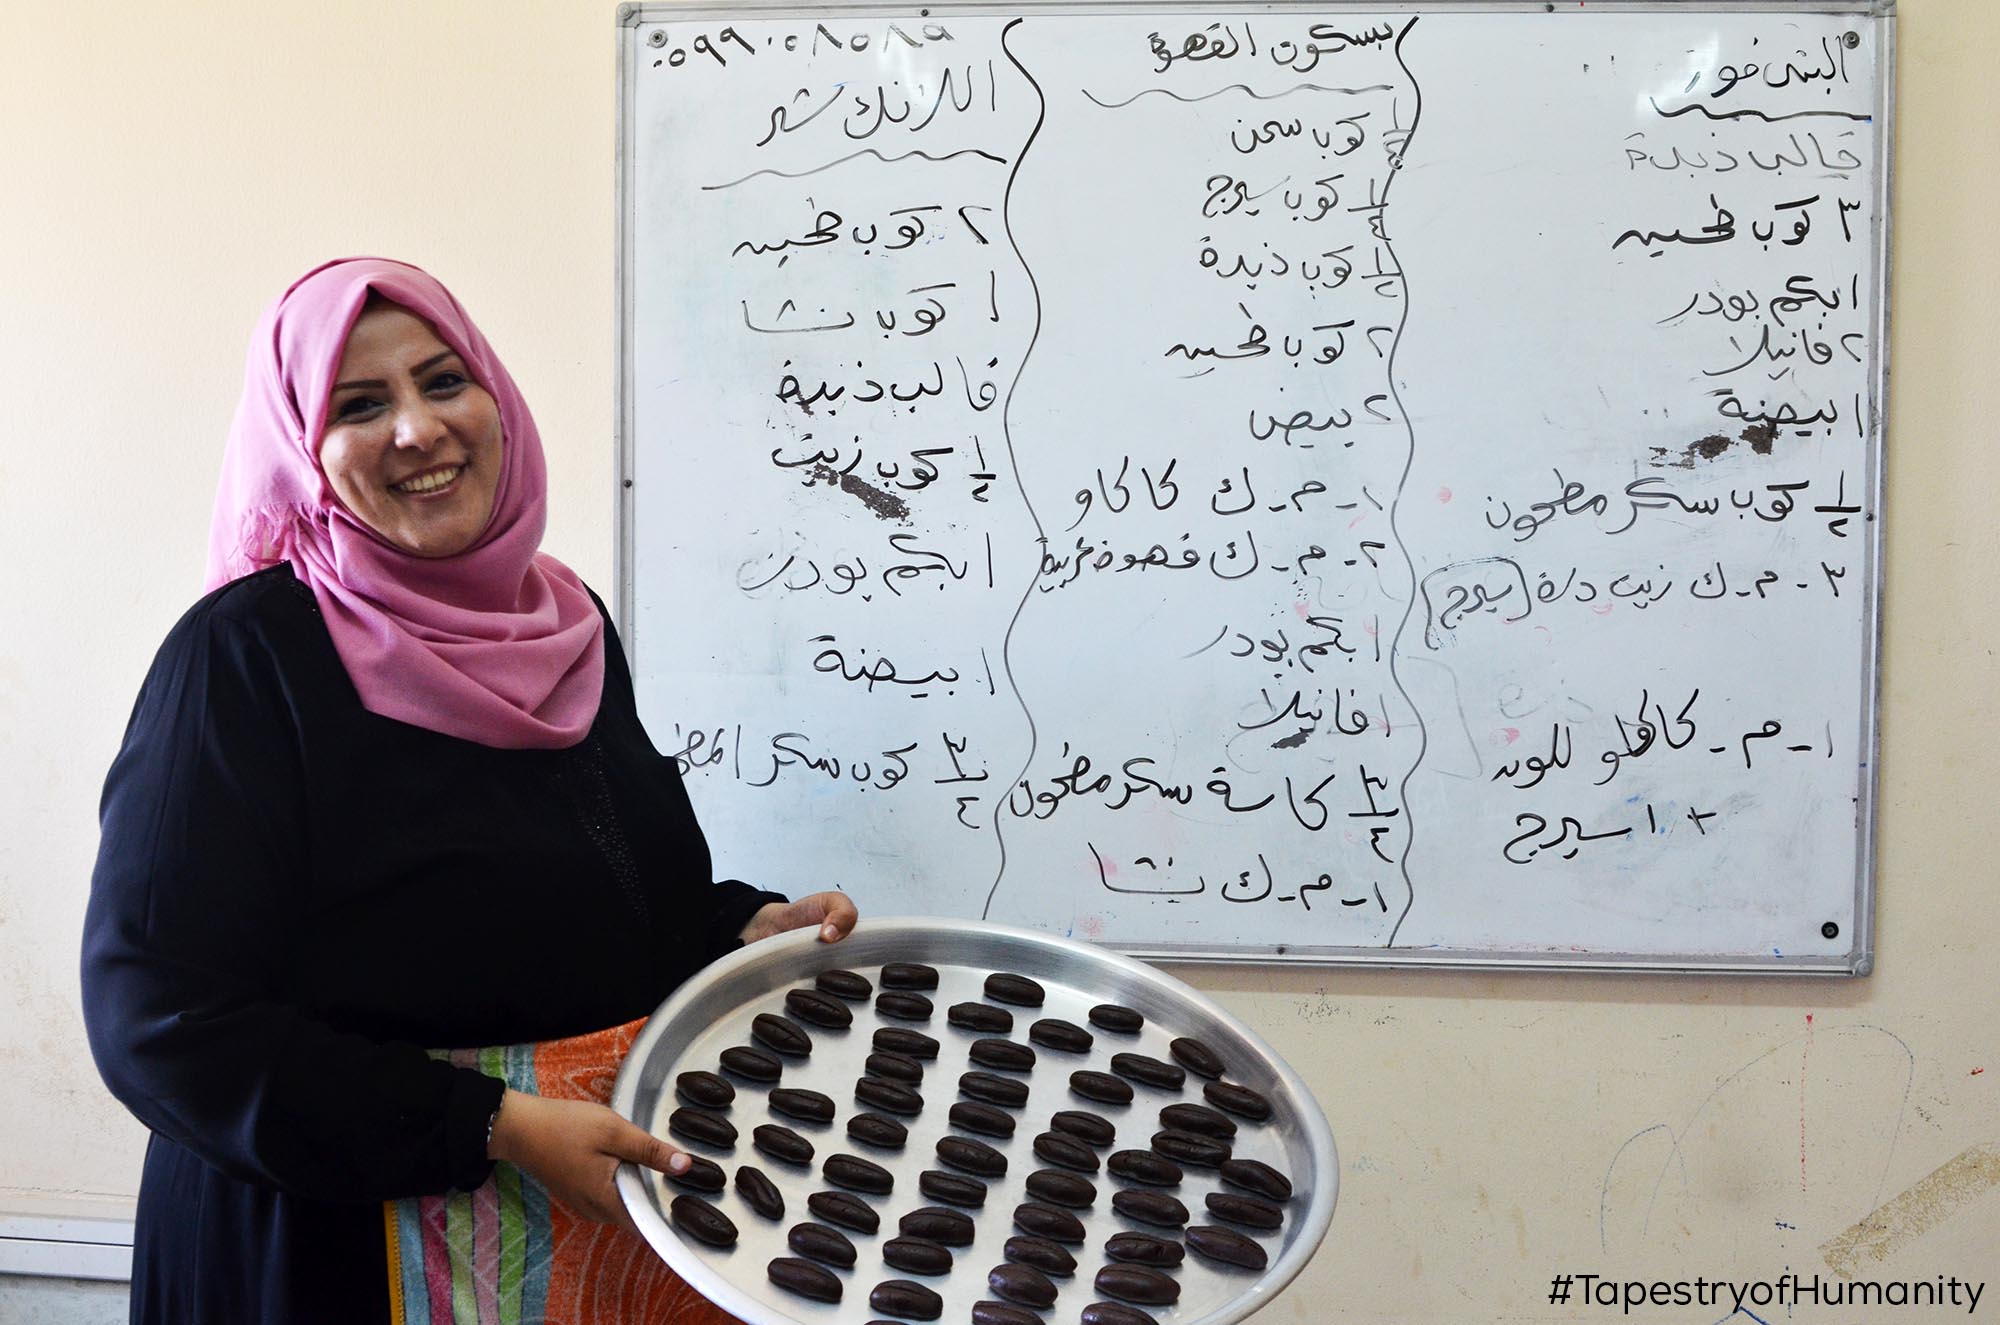 البتي فور
قالب زبدة
٣ كوب طحين
١ بكم بودر
٢ فانيلا
١ بيضة
١/٢ كوب سكر مطحون
٣ - م - ك زيت ذرة (سيرج)
١ - م - كاكاو للون
+ ١ سيرج
بسكوت القهوة
١/٤ كوب سمن
١/٤ كوب سيرج
١/٢ كوب زبدة
٢ كوب طحين
٢ بيض
١ - م - ك كاكاو
٢ - م - ك قهوة عربية
١ بكم بودر
١ فانيلا
٣/٤ كاسة سكر مطحون
١ - م - ك نشا
٠٥٩٩٠٥٨٥٨٩
اللانك شر
٢ كوب طحين
١ كوب نشا
قالب زبدة
١/٢ كوب زيت
١ بكم بودر
١ بيضة
٣/٤ كوب سكر
#TapestryofHumanity